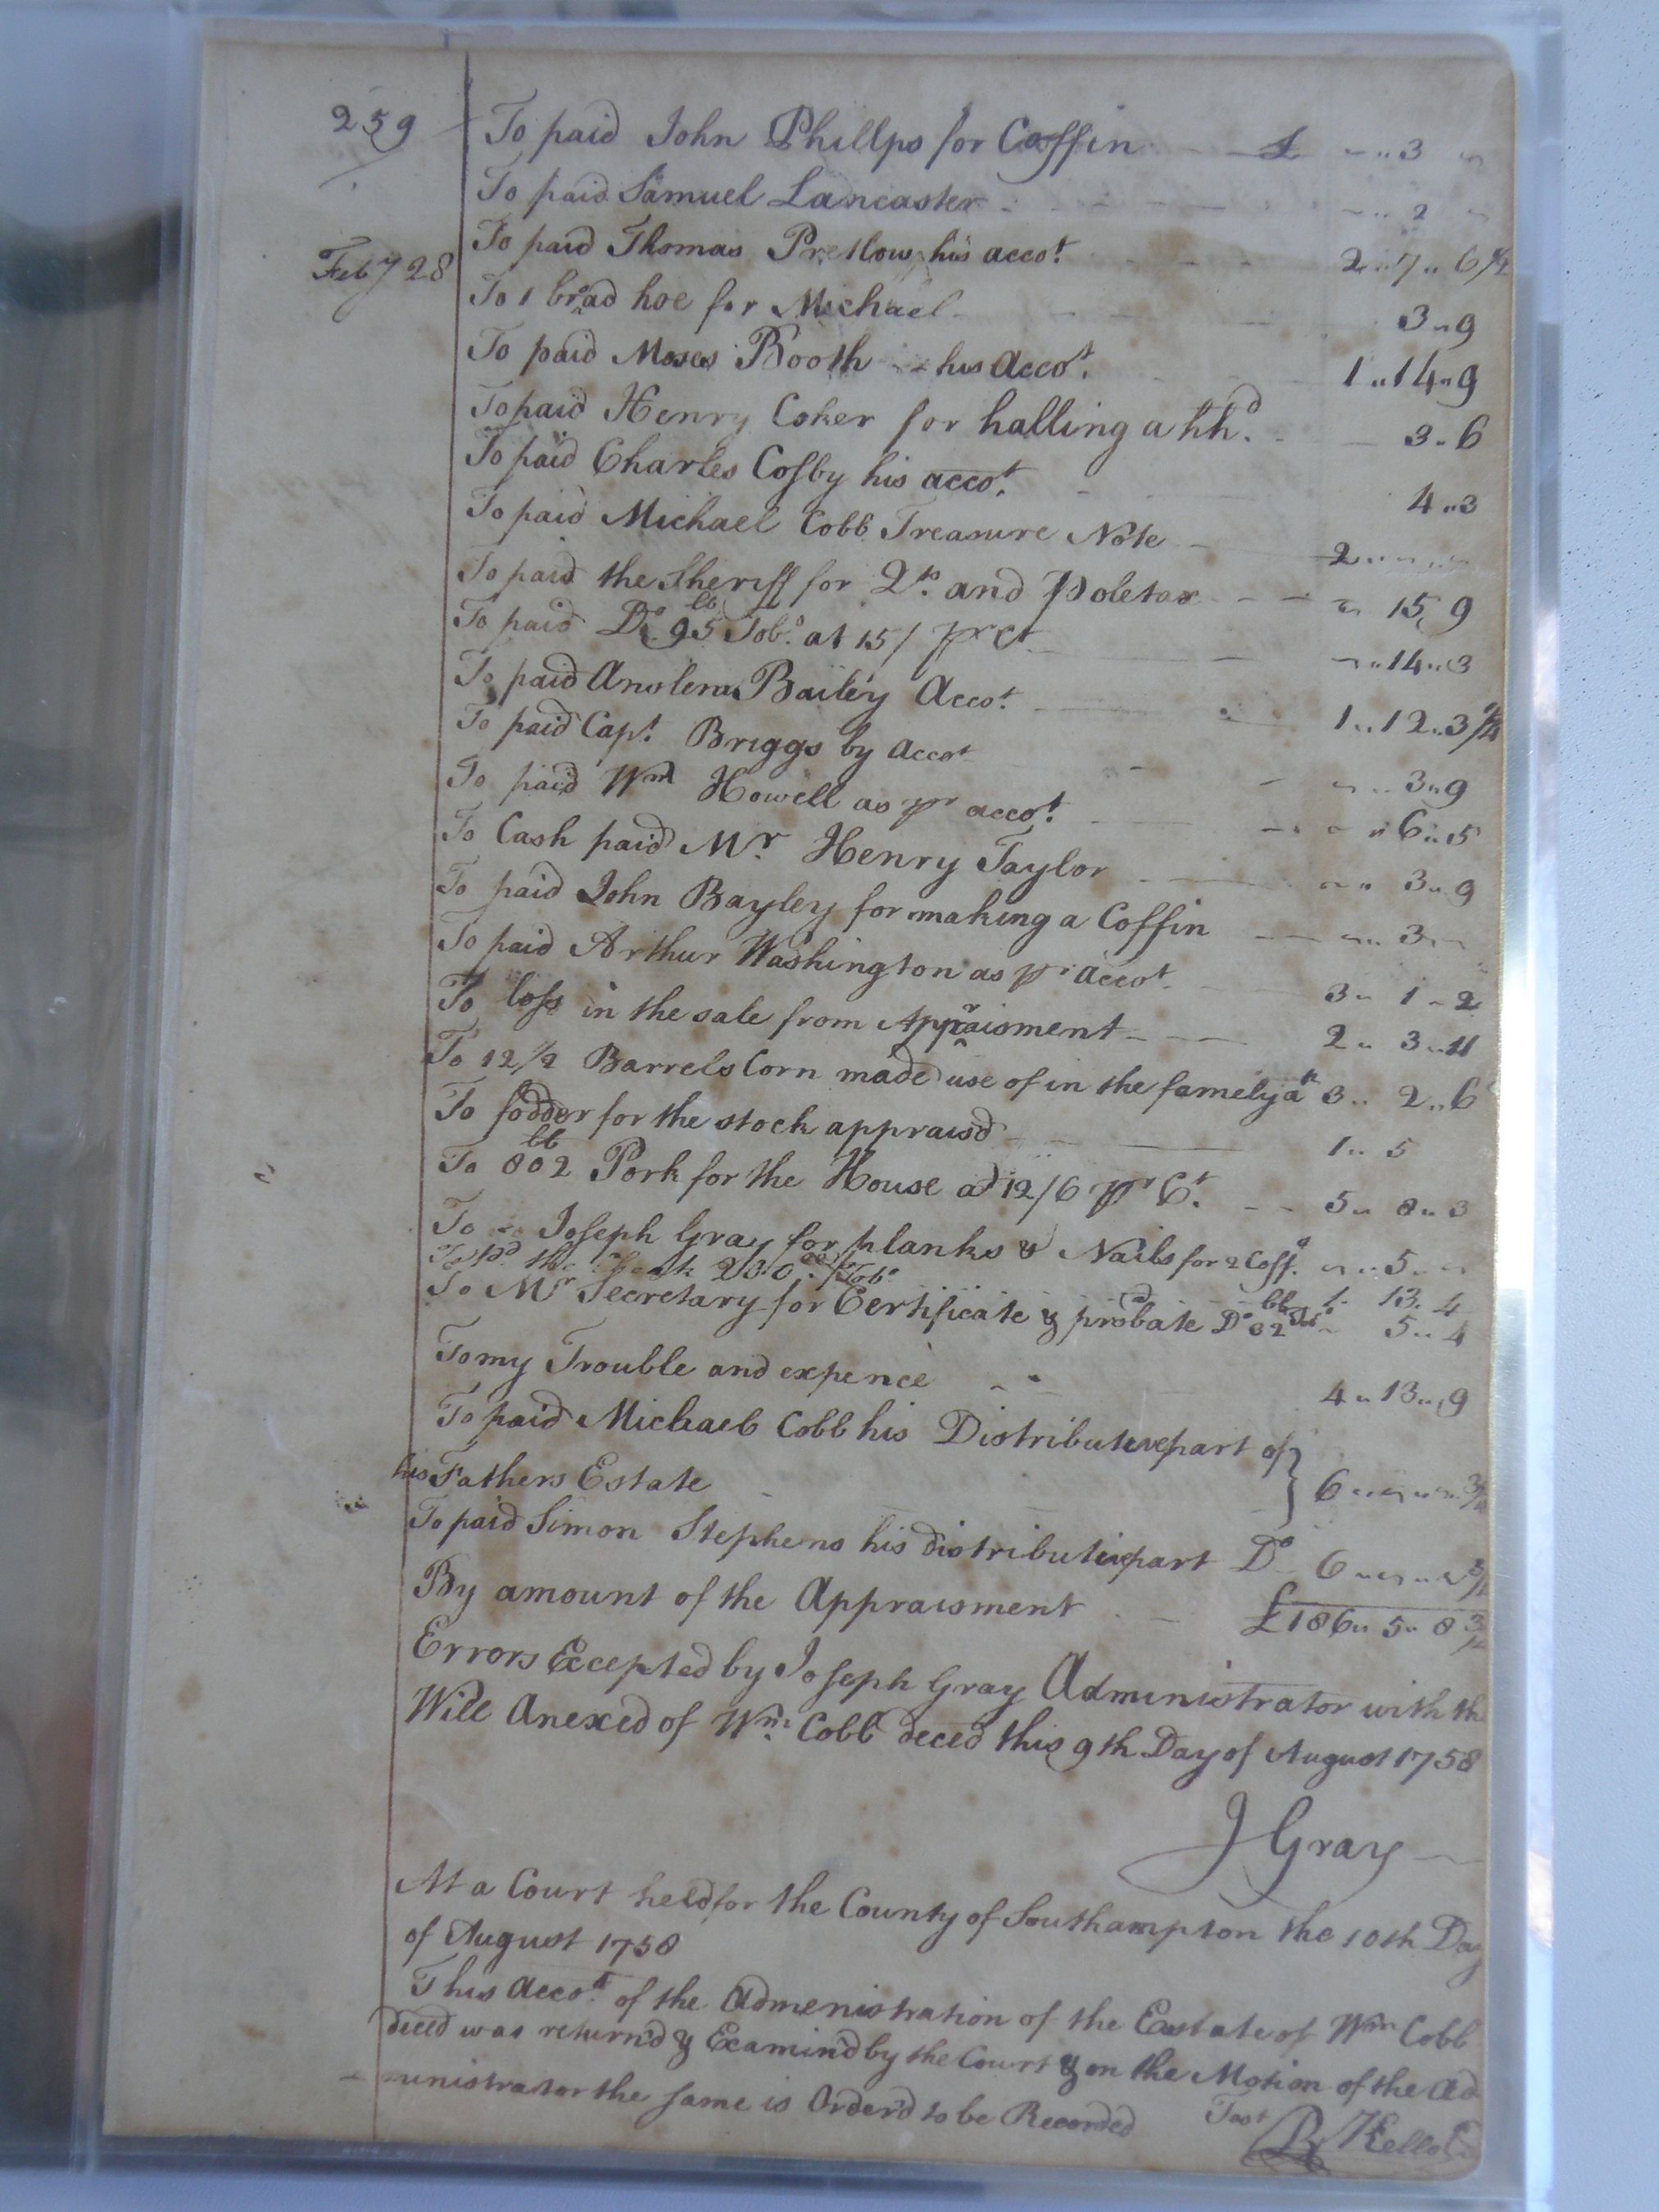 259 To paid John Phillps for Coffin £ ~ „ 3 ~
To paid Samuel Lancaster ~ „ 2 ~
To paid Thomas Pretlow his accot. 2 „ 7 „ 6 1/4
Feby 28 To 1 broad hoe for Michael 3 „ 9
To paid Moses Booth his accot. 1 „ 14 „ 9
To paid Henry Coker for halling a hhd. 3 „ 6
To paid Charles Cosby his accot. 4 „ 3
To paid Michael Cobb Treasure Note 2 „ ~ „ ~
To paid the Sheriff for Qts. and Poletax ~ 15 „ 9
To paid Do. 95 lb Tobo. at 15/ pr Ct ~ „ 14 „ 3
To paid Bailey Accot. 1 „ 12 „ 3
To paid Capt. Briggs by accot ~ „ 3 „ 9
To paid Wm Howell as pr accot. ~ „ 6 „ 5
To Cash paid Mr. Henry Taylor ~ „ 3 „ 9
To paid John Bayley for making a Coffin ~ „ 3 ~
To paid Arthur Washington as pr accot. 3 „ 1 „ 2
To loss in the sale from Appraisment 2 „ 3 „ 11
To 12 1/2 Barrels Corn made use of in the famely at 3 „ 2 „ 6
To fodder for the stock appraisd 1 „ 5
To 802 lb Pork for the House at 12/6 pr Ct. 5 „ 0 „ 3
To Joseph Gray for planks & Nails for 2 Coff. ~ „ 5 „ ~
To pd. the Tobo. 1 „ 13 „ 4
To Mr Secretary for Certificate & probate Do 32 lb Tobo ~ 5 „ 4
To my Trouble and expence 4 „ 13 „ 9
To paid Michael Cobb his Distributive part of }
his Fathers Estate 6 „ ~ „ ~ 3/4
To paid Simon Stephens his distributive part Do 6 „ ~ „ ~ 3/4
By amount of the Appraisment £186 „ 5 „ 8 3/4
Errors Excepted by Joseph Gray Administrator with the
Will Anexed of Wm. Cobb deced this 9th Day of August 1758
J Gray
At a Court held for the County of Southampton the 10th Day
of August 1758
This Accot. of the Admenistration of the Eastate of Wm Cobb
deced was return'd & Examin'd by the Court & on the Motion of the Ad
ministrator the same is Order'd to be Recorded Test
R Kello